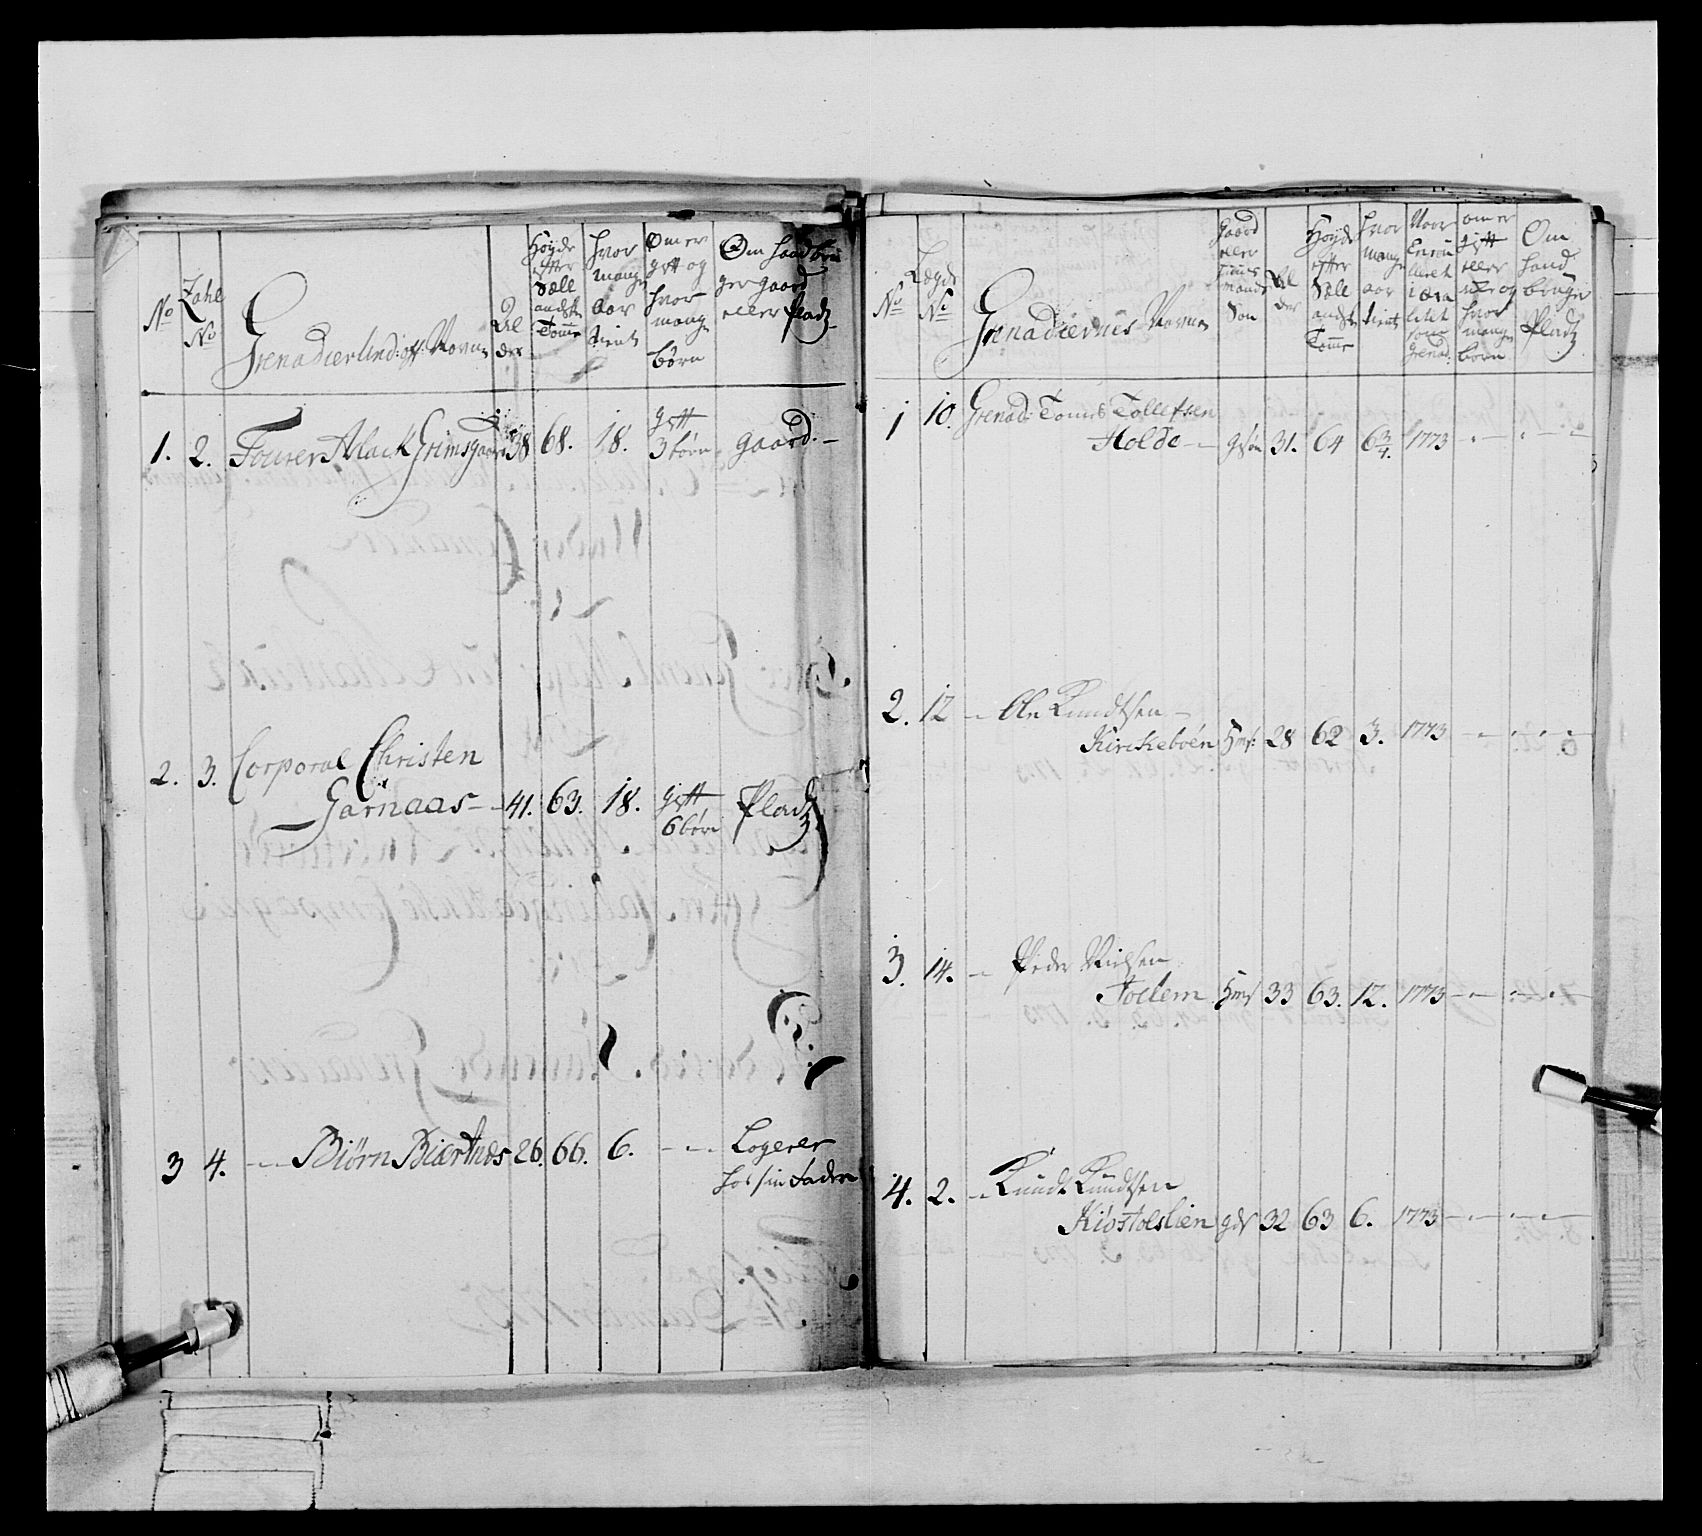 No
Zahl No
Grenadier Und: off: Navne
Al der
Høyde efter Sæle andske Tomme
hvor mange aar tient
Om er gift og hvor mange børn
Om hand bruger gaard eller Pladz
1. 2. Fourer Aslack Grimsgaard 38 68. 18. gift 3 børn gaard. —
2. 3. Corporal Christen
Garnaas — 41. 63. 18. gift 6 børn Pladz
3 4. — Biørn Biertnæs 26. 66. 6. — Logerer
hos sin Fader
No
Lægds No
Grenadiernes Navne
Gaard eller huus mands Søn
Al der
Høyde efter Sæle andske Tomme
hvor mange aar tient
Naar
som Grenad:
om er gift eller eÿ og hvor mange børn
Om hand bruger Pladz
1 10. Grenad: Tollefsen
Holde — gsøn 31. 64 6 3/4. 1773 — — —
2. 12 — Ole Knudtsen —
Kirckebøen Hms: 28 62 3. 1773 — — —
3. 14. — Peder Nielsen
Tollem Hms 33 63. 12. 1773 — — —
4. 2. — Knud Knudtsen
Kiøstolslien gds 32 63 6. 1773 — — —